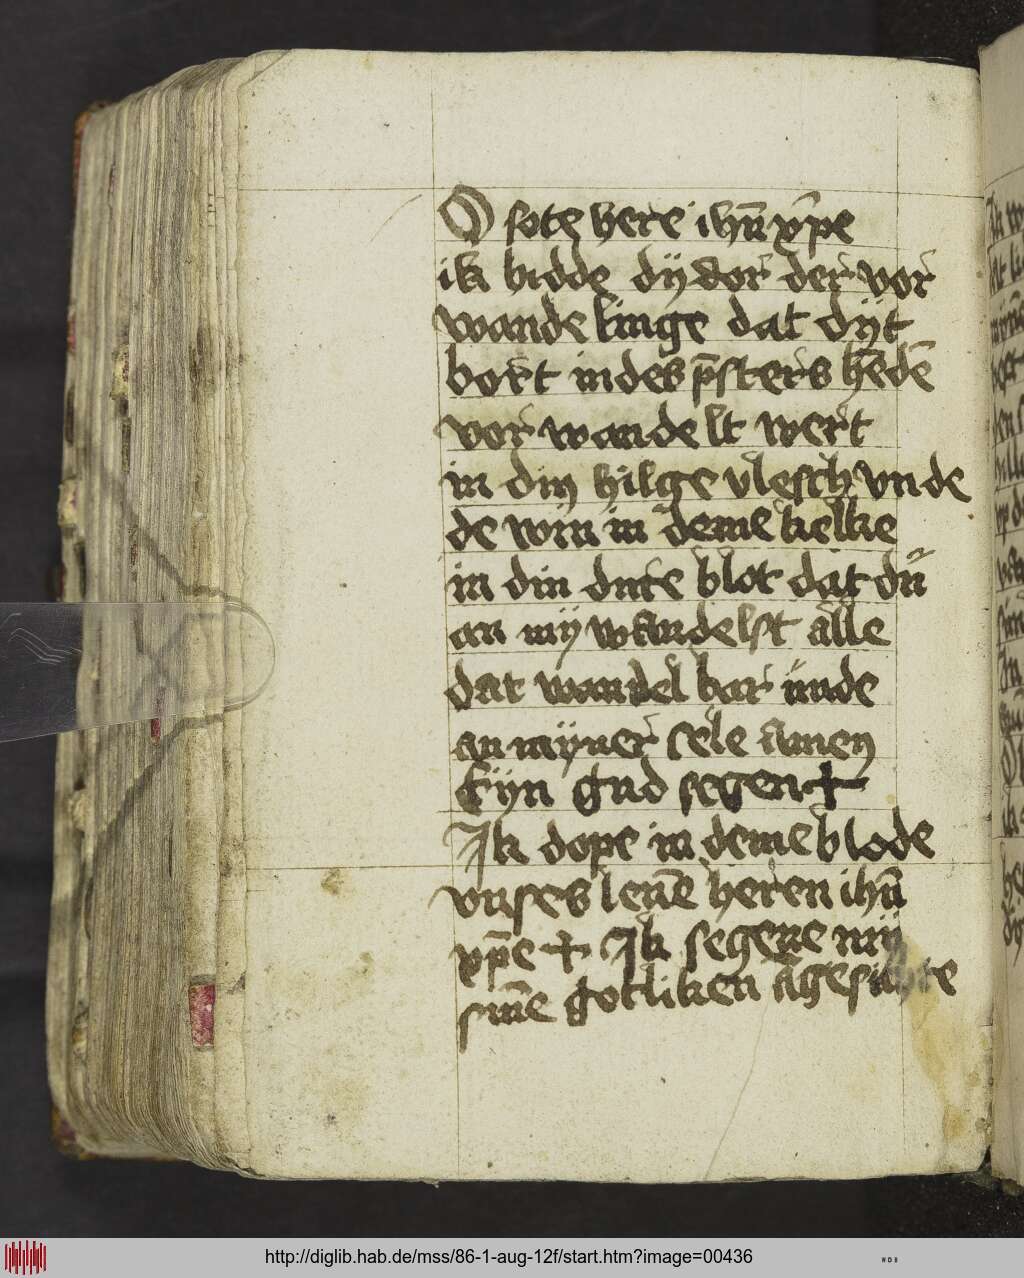 O sote here ihū xp̄e
ik bidde dÿ dor der vor
wandelinge dat dÿt
brot in des p̄sters hēdē
vor wandelt wert
in din hilge vlesch vnde
de win in deme kelke
in din dure blot dat dů
an mÿ wandelst alle
dat wandel bar is unde
an mÿner sele Amen
Eÿn gud segen +
Ik dope in deme blode
vnses leuē heren ihū
xp̄e + Ik segene mÿ
sinē gotliken āgesichte
http://diglib.hab.de/mss/86-1-aug-12f/start.htm?image=00436